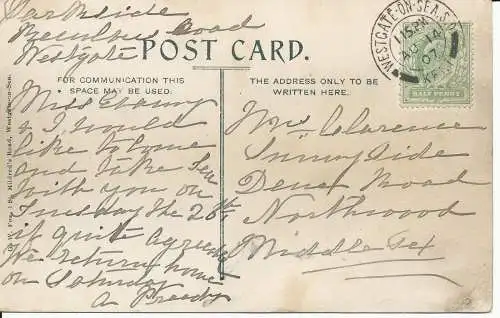 Parkside
Reculver Road
Westgate
POST CARD.
FOR COMMUNICATION THIS
SPACE MAY BE USED.
THE ADDRESS ONLY TO BE
WRITTEN HERE.
WESTGATE-ON-SEA
HALF PENNY
Miss
& I would
like to come
and take Tea
with you on
Tuesday the 26th
if quite agreeable
We return home
on Saturday
A Preedy
Mrs Clarence
Sunnyside
Dene Road
Northwood
Middlesex
Mildred's Road, Westgate-on-Sea.